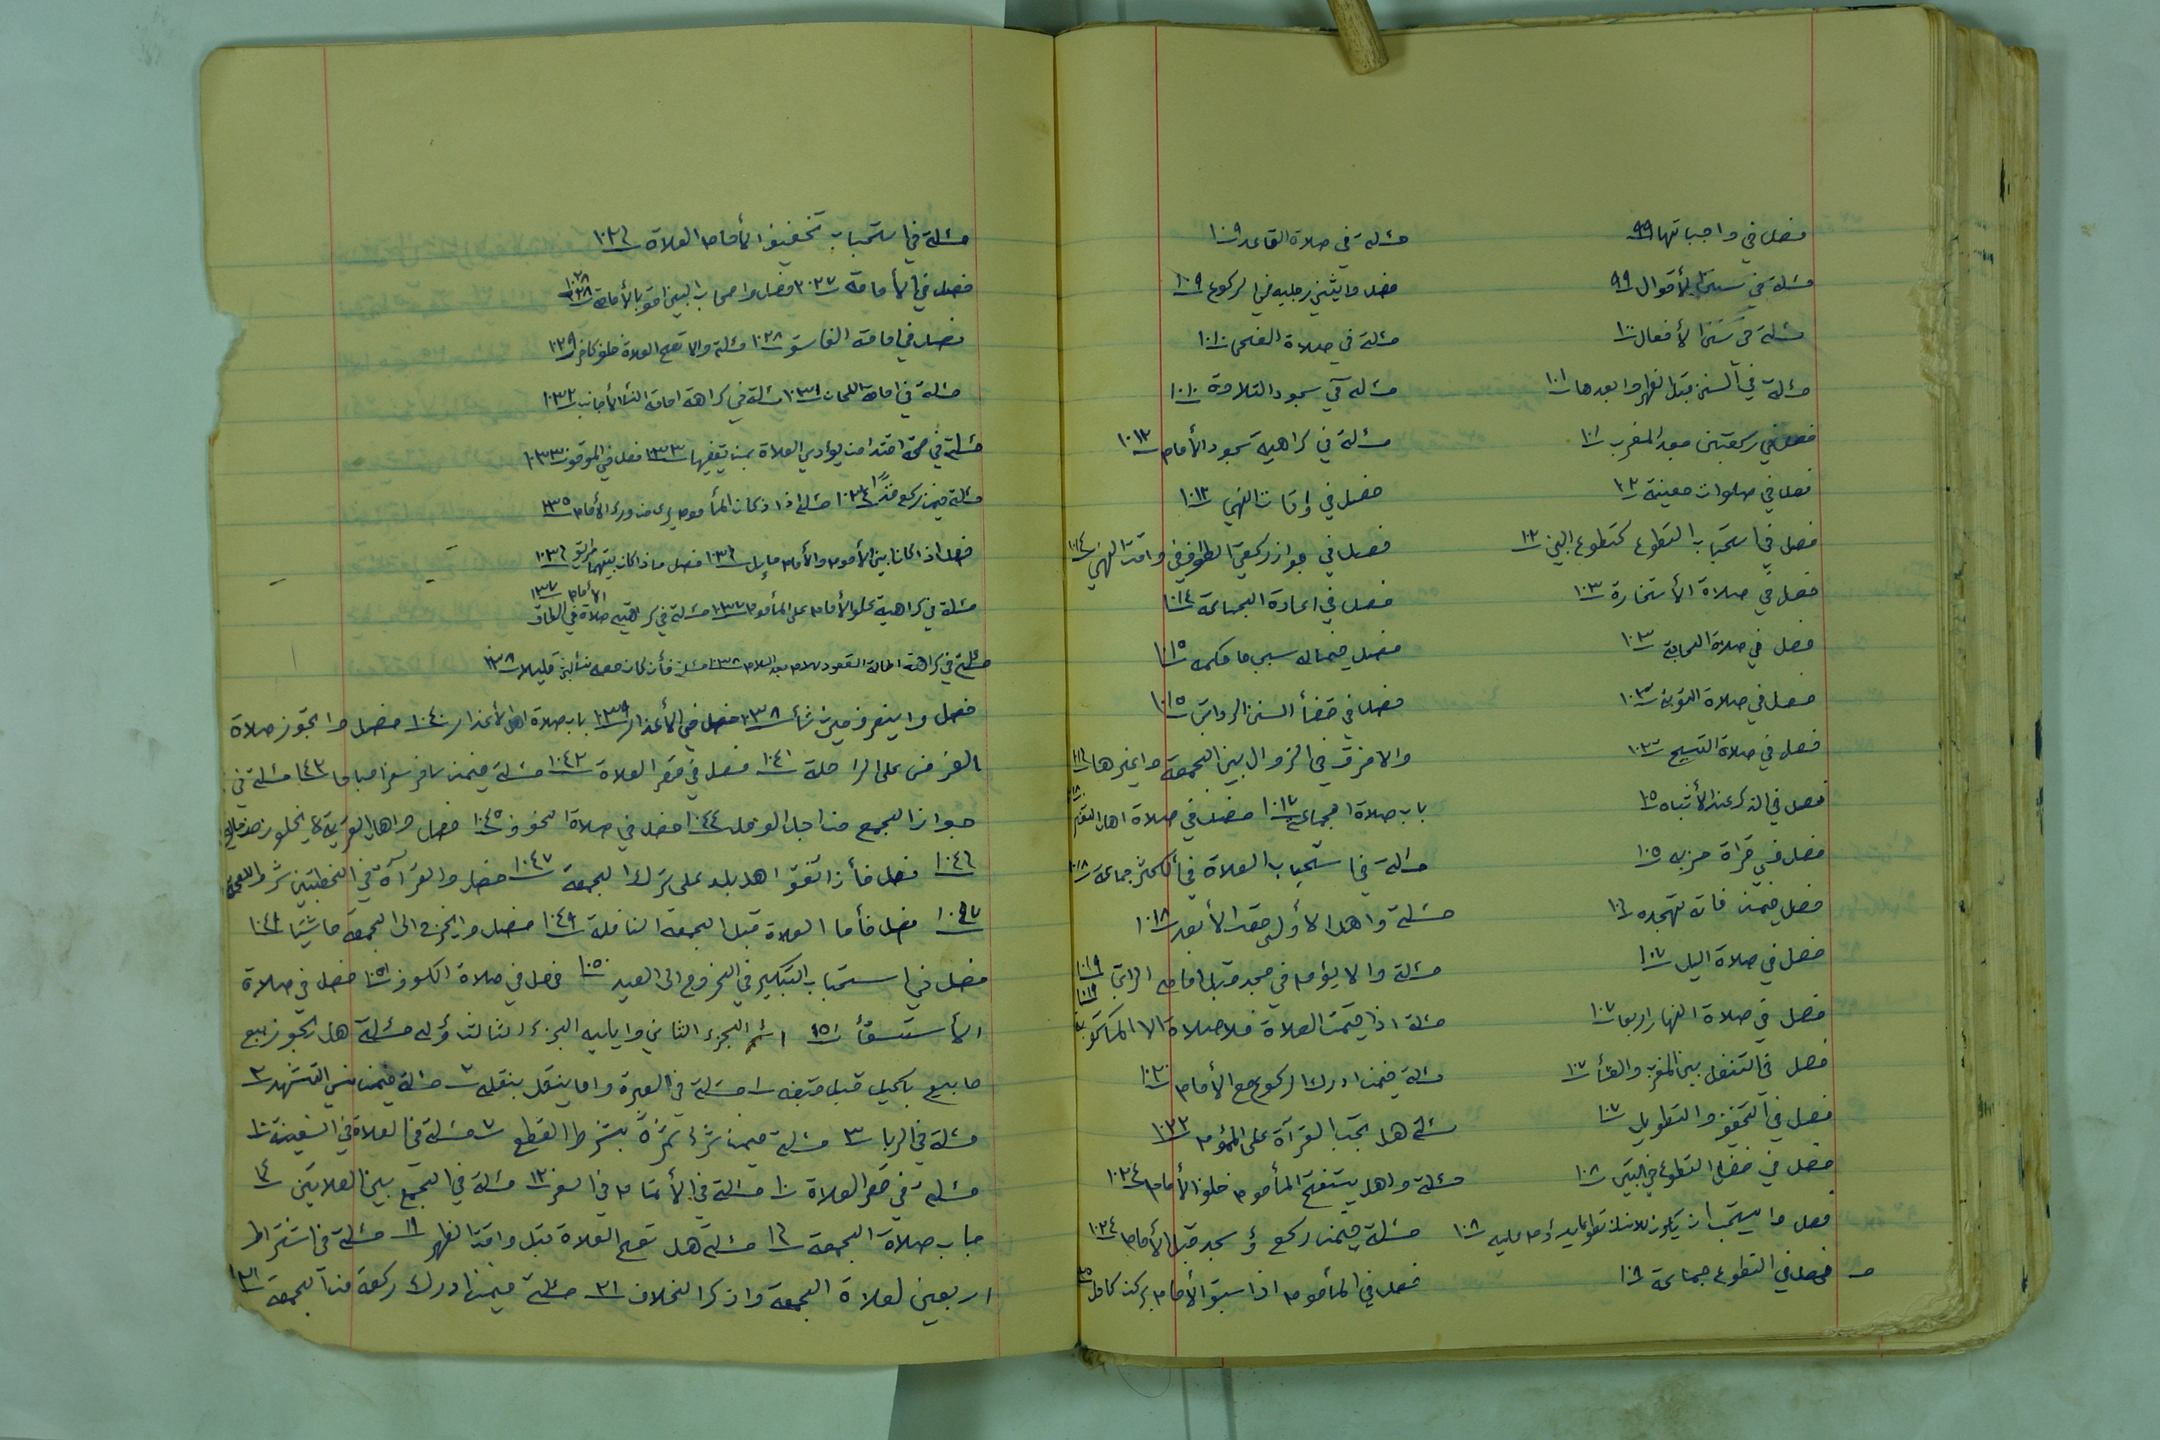 فصل في واجباتها ٩٩
مسئلة في سنن الأقوال ٩٩
مسئلة في سنن الأفعال ١٠٠
مسئلة في السنن قبل الظهر وابعدها ١٠١
فصل في ركعتين بعد المغرب ١٠١
فصل في صلوات معينة ١٠٢
فصل في استحباب التطوع كتطوع النبي ١٠٢
فصل في صلاة الأستخارة ١٠٣
فصل في صلاة الحاجة ١٠٣
فصل في صلاة التوبة ١٠٣
فصل في صلاة التسبيح ١٠٣
فصل في الذكر عند الأنتباه ١٠٥
فصل في قراة حزبه ١٠٥
فصل فيمن فاته تهجده ١٠٦
فصل في صلاة اليل ١٠٧
فصل في صلاة النهار اربعا ١٠٧
فصل في التنفل بين المغرب والعشأ ١٠٧
فصل في التخفيف والتطويل ١٠٧
فصل في فضل التطوع في البيت ١٠٨
فصل وايستحب ان يكون للانسان تطوعا يداوم عليه ١٠٨
فصل في التطوع جماعة ١٠٩
مسئلة في صلاة القاعد ١٠٠٩
فصل وايثني رجليه في الركوع ١٠٠٩
مسئلة في صلاة الضحى ١٠١٠
مسئلة في سجود التلاوة ١٠١٠
مسئلة في كراهية سجود الأمام ١٠١٢
فصل في اوقات النهي ١٠١٢
فصل في جواز ركعتي الطواف في وقت النهي ١٠١٤
فصل في اعادة الجماعة ١٠١٤
فصل فيماله سبب ما حكمه ١٠١٥
فصل في قضأ السنن الرواتب ١٠١٥
والا فرق في الزوال بين الجمعة واغيرها ١٠١٦
باب صلاة الجماعة ١٠١٧ فصل في صلاة اهل الثغر ١٠١٨
مسئلة في استحباب الصلاة في الأكثر جماعة ١٠١٨
مسئلة واهل الأولى قصد الأبعد ١٠١٨
مسئلة والا يؤم في مسجد قبل امامه الراتب ١٠١٩
مسئلة اذا قيمت الصلاة فلا صلاة الا المكتوبة ١٠١٩
مسئلة فيمن ادرك الركوع مع الأمام ١٠٢٠
مسئلة هل تجب القرآة على المؤموم ١٠٢٢
مسئلة واهل يستفتح المأموم خلف الأمام ١٠٢٤
مسئلة فيمن ركع و سجد قبل الأمام ١٠٢٤
فصل في المأموم اذا سبق الأمام بركن كامل ١٠٢٥
مسئلة في استحباب تخفيف الأمام الصلاة ١٠٢٦
فصل في الأمامة ١٠٢٧ فصل واصحاب البيت احق بالأمامة ١٠٢٨
فصل في امامة الفاسق ١٠٢٨ مسئلة والا تصح الصلاة خلف كافر ١٠٢٩
مسئلة في امامة اللحان ١٠٣١ مسئلة في كراهة امامة النسأ الأجانب ١٠٣٢
مسئلة في صحة اقتدا من يؤدي الصلاة بمن يقضيها ١٠٣٣ فصل في الموقف ١٠٣٣
مسئلة فيمن ركع فذًا ١٠٣٤ مسئلة اذا كان المأموم يرى من ورى الأمام ١٠٣٥
فصل اذا كان بين الأموم والأمام حايل ١٠٣٦ فصل فاذا كان بينهما طريق ١٠٣٦
مسئلة في كراهية علو الأمام على المأموم ١٠٣٧ مسئلة في كراهية صلاة في الطاق الأمام ١٠٣٧
مسئلة في كراهة اطالة القعود للامام بعد السلام ١٠٣٨ مسئلة فأن كان معه نسأ لبث قليلا ١٠٣٨
فصل واينصرف حيث شأ ١٠٣٨ فصل في الأعذار ١٠٣٩ باب صلاة اهل الأعذار ١٠٤٠ فصل واتجوز صلاة
الفرض على الراحلة ١٠٤١ فصل في قصر الصلاة ١٠٤٢ مسئلة فيمن سافر سفرا مباحا ١٠٤٣ مسئلة في
جواز الجمع من اجل الوحل ١٠٤٤ فصل في صلاة الخوف ١٠٤٥ فصل واهل القرية لا يخلو من حالين
١٠٤٦ فصل فأذا اتفق اهل بلد على ترك الجمعة ١٠٤٧ فصل والقرآة في الخطبتين شرط للجمعة
١٠٤٧ فصل فأما الصلاة قبل الجمعة النافلة ١٠٤٩ فصل وايخرج الى الجمعة ماشيًا ١٠٤٩
فصل في استحباب التبكير في الخروج الى العيد ١٠٥٠ فصل في صلاة الكسوف ١٠٥١ فصل في صلاة
الأستسقأ ١٠٥١ انتم الجزء الثاني وايليه الجزء الثالث وأوله مسئلة هل يجوز بيع
ما بيع بالكيل قبل قبضه ١ مسئلة في الصبرة واما ينقل بنقله ٢ مسئلة فيمن نسي التشهد ٢
مسئلة في الربا ٣ مسئلة فيمن شرى ثمرةً بشرط القطع ٧ مسئلة في الصلاة في السفينة ١٠
مسئلة في قصر الصلاة ١٠ مسئلة في الأتمام في السفر ١٢ مسئلة في الجمع بين الصلاتين ١٤
باب صلاة الجمعة ١٦ مسئلة هل تصح الصلاة قبل وقت الظهر ١٩ مسئلة في اشتراط
اربعين لصلاة الجمعة واذكر الخلاف ٢١ مسئلة فيمن ادرك ركعة من الجمعة ٢١